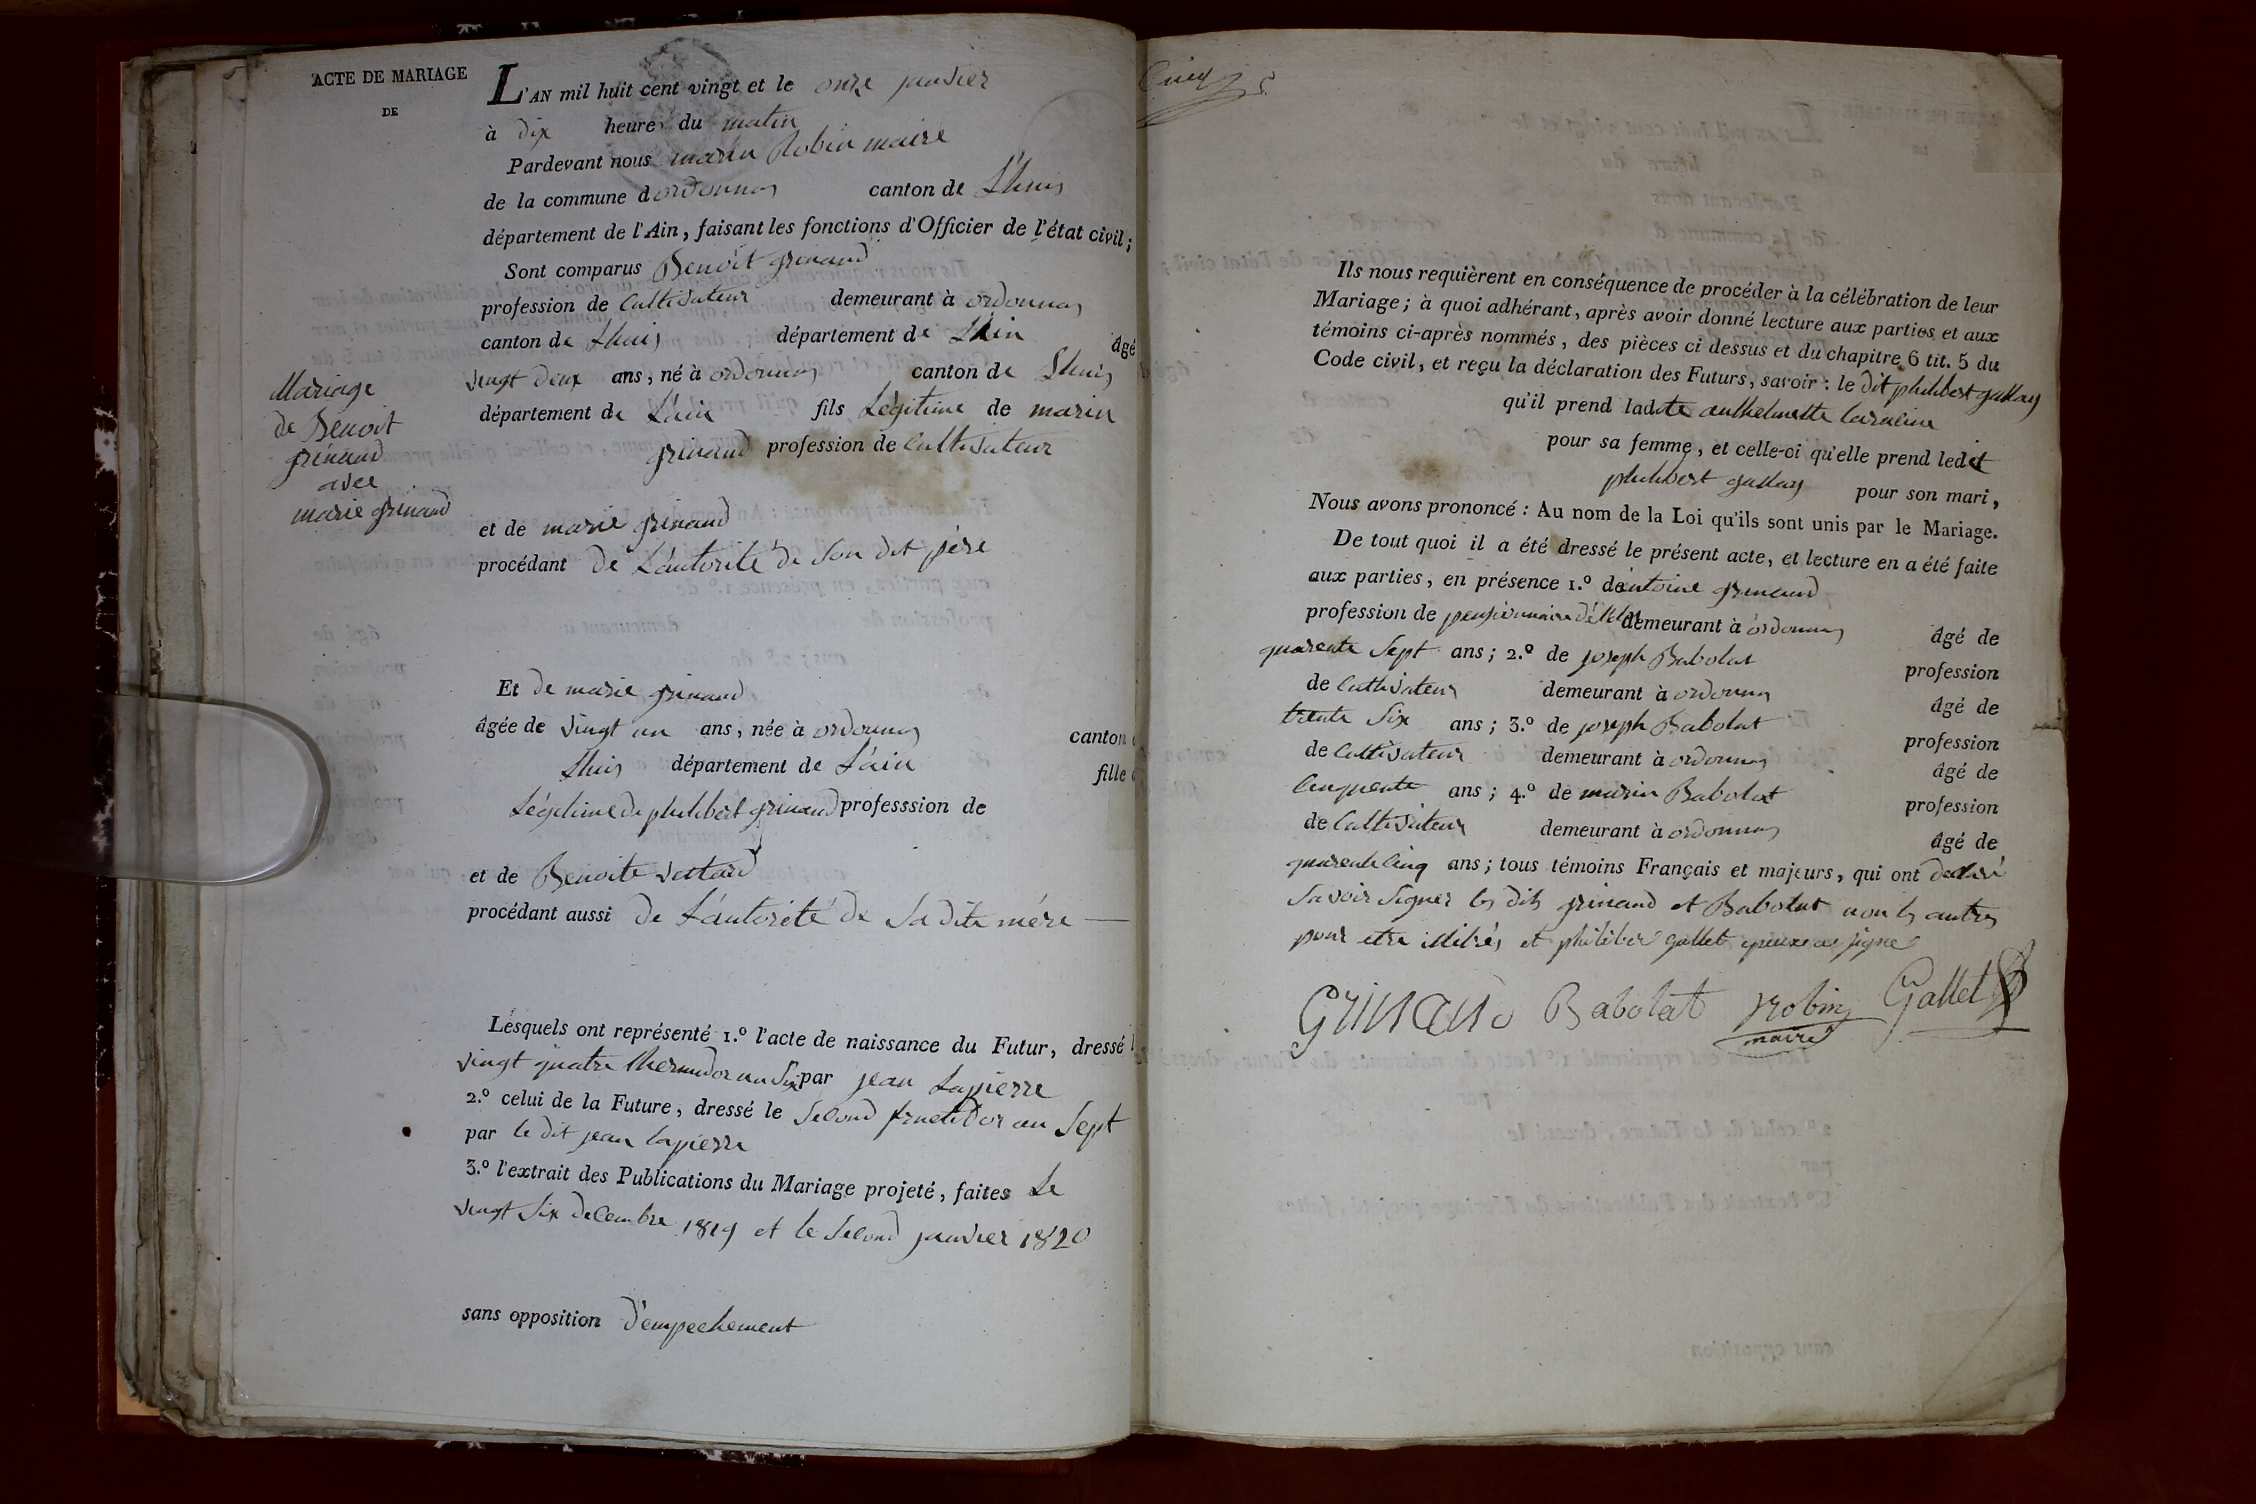 ACTE DE MARIAGE
DE
Mariage
de Benoit
grinand
avec
marie grinand
L'AN mil huit cent vingt et le onze janvier
à dix heures du matin
Pardevant nous marin Robin maire
de la commune d'ordonnas canton de Lhuis
département de l'Ain, faisant les fonctions d'Officier de l'état civil;
Sont comparus Benoit grinand
profession de Cultivateur demeurant à ordonnas
canton de Lhuis département de L'Ain âgé
vingt deux ans, né à ordonnas canton de Lhuis
département de L'ain fils Légitime de marin
grinand profession de Cultivateur
et de marie grinand
procédant de L'autorité de Son dit père
Et de marie grinand
âgée de vingt un ans, née à ordonnas canton
Lhuis département de L'ain fille
Légitime de philibert grinand professsion de
et de Benoite
procédant aussi de L'autorité de Sa dite mére
Lesquels ont représenté 1.º l'acte de naissance du Futur, dressé
vingt quatre thermidor an Six par jean Lapierre
2.º celui de la Future, dressé le Second fructidor an Sept
par le dit jean lapierre
3.º l'extrait des Publications du Mariage projeté, faites Le
vingt Six decembre 1819 et le Second janvier 1820
sans opposition d'empechement
Cinq 5
Ils nous requièrent en conséquence de procéder à la célébration de leur
Mariage; à quoi adhérant, après avoir donné lecture aux parties et aux
témoins ci-après nommés, des pièces ci dessus et du chapitre 6 tit. 5 du
Code civil, et reçu la déclaration des Futurs, savoir: le dit philibert gallay
qu'il prend ladite anthelmette
pour sa femme, et celle-ci qu'elle prend ledit
philibert gallay pour son mari,
Nous avons prononcé: Au nom de la Loi qu'ils sont unis par le Mariage.
De tout quoi il a été dressé le présent acte, et lecture en a été faite
aux parties, en présence 1.º de antoine grinand
profession de pensionnaire demeurant à ordonnas âgé de
quarente Sept ans; 2.º de joseph Babolat profession
de Cultivateur demeurant à ordonnas âgé de
trente Six ans; 3.º de joseph Babolat profession
de Cultivateur demeurant à ordonnas âgé de
Cinquente ans; 4.º de marin Babolat profession
de Cultivateur demeurant à ordonnas âgé de
quarente Cinq ans; tous témoins Français et majeurs, qui ont declaré
Savoir Signer les dits grinand et Babolat non les autres
pour etre illitrés et philiber gallet epeux as signé
Grinand Babolat Robin Gallet
maire